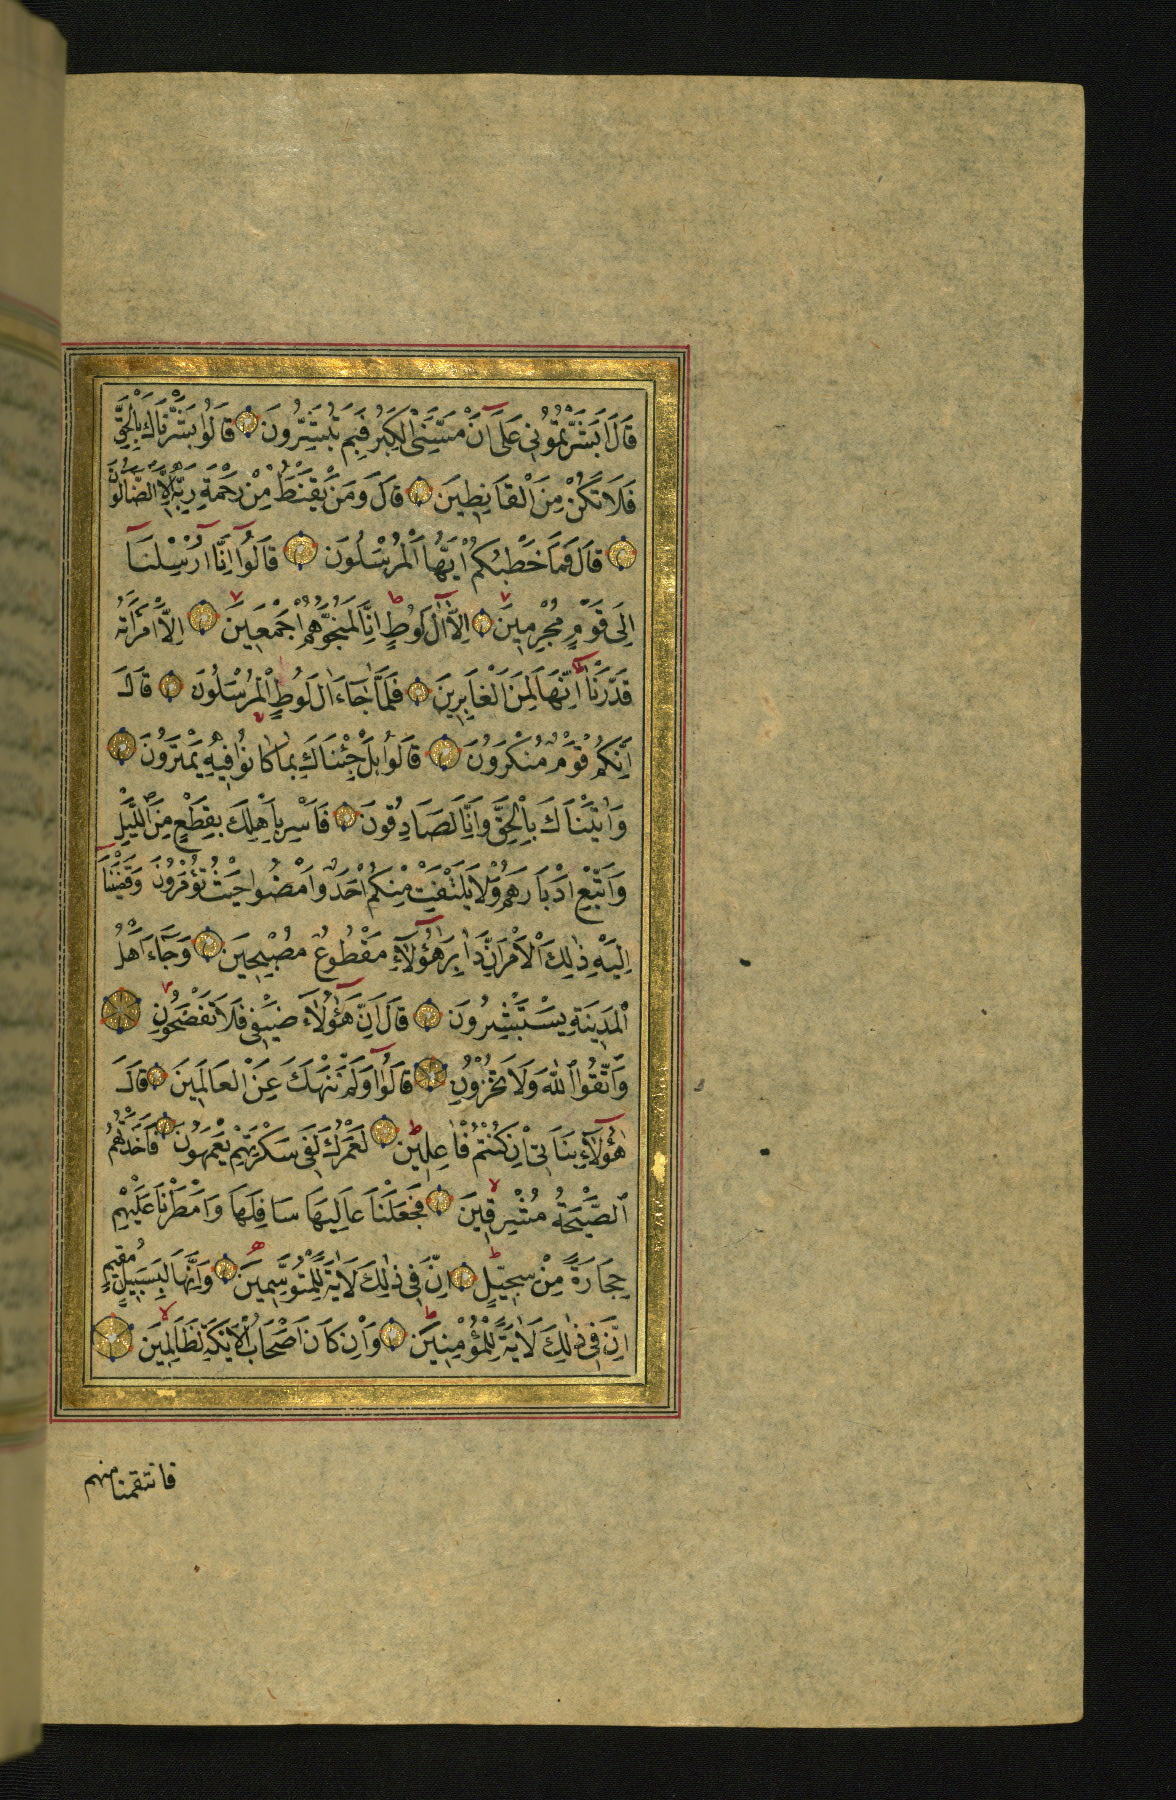 قَالَ اَبَشَّرْتُمُونِي عَلَى اَنْ مَسَّنِيَ الْكِبَرُ فَبِمَ تُبَشِّرُونَ قَالُوا بَشَّرْنَاكَ بِالْحَقِّ
فَلَا تَكُنْ مِنَ الْقَانِطِينَ قَالَ وَمَنْ يَقْنَطُ مِنْ رَحْمَةِ رَبِّهِ اِلَّا الضَّالُّونَ
قَالَ فَمَا خَطْبُكُمْ اَيُّهَا الْمُرْسَلُونَ قَالُوا اِنَّا اُرْسِلْنَا
اِلَى قَوْمٍ مُجْرِمِينَ اِلَّا اٰلَ لُوطٍ اِنَّا لَمُنَجُّوهُمْ اَجْمَعِينَ اِلَّا امْرَاَتَهُ
قَدَّرْنَا اِنَّهَا لَمِنَ الْغَابِرِينَ فَلَمَّا جَاءَ اٰلَ لُوطٍ الْمُرْسَلُونَ قَالَ
اِنَّكُمْ قَوْمٌ مُنْكَرُونَ قَالُوا بَلْ جِئْنَاكَ بِمَا كَانُوا فِيهِ يَمْتَرُونَ
وَاَتَيْنَاكَ بِالْحَقِّ وَاِنَّا لَصَادِقُونَ فَاَسْرِ بِاَهْلِكَ بِقِطْعٍ مِنَ الَّيْلِ
وَاتَّبِعْ اَدْبَارَهُمْ وَلَا يَلْتَفِتْ مِنْكُمْ اَحَدٌ وَامْضُوا حَيْثُ تُؤْمَرُونَ وَقَضَيْنَا
اِلَيْهِ ذٰلِكَ الْاَمْرَ اَنَّ دَابِرَ هٰؤُلَاءِ مَقْطُوعٌ مُصْبِحِينَ وَجَاءَ اَهْلُ
الْمَدِينَةِ يَسْتَبْشِرُونَ قَالَ اِنَّ هٰؤُلَاءِ ضَيْفِي فَلَا تَفْضَحُونِ
وَاتَّقُوا اللّٰهَ وَلَا تُخْزُونِ قَالُوا اَوَلَمْ نَنْهَكَ عَنِ الْعَالَمِينَ قَالَ
هٰؤُلَاءِ بَنَاتِي اِنْ كُنْتُمْ فَاعِلِينَ لَعَمْرُكَ اِنَّهُمْ لَفِي سَكْرَتِهِمْ يَعْمَهُونَ فَاَخَذَتْهُمُ
الصَّيْحَةُ مُشْرِقِينَ فَجَعَلْنَا عَالِيَهَا سَافِلَهَا وَاَمْطَرْنَا عَلَيْهِمْ
حِجَارَةً مِنْ سِجِّيلٍ اِنَّ فِي ذٰلِكَ لَاٰيَةً لِلْمُتَوَسِّمِينَ وَاِنَّهَا لَبِسَبِيلٍ مُقِيمٍ
اِنَّ فِي ذٰلِكَ لَاٰيَةً لِلْمُؤْمِنِينَ وَاِنْ كَانَ اَصْحَابُ الْاَيْكَةِ لَظَالِمِينَ
فانتقمنا منهم